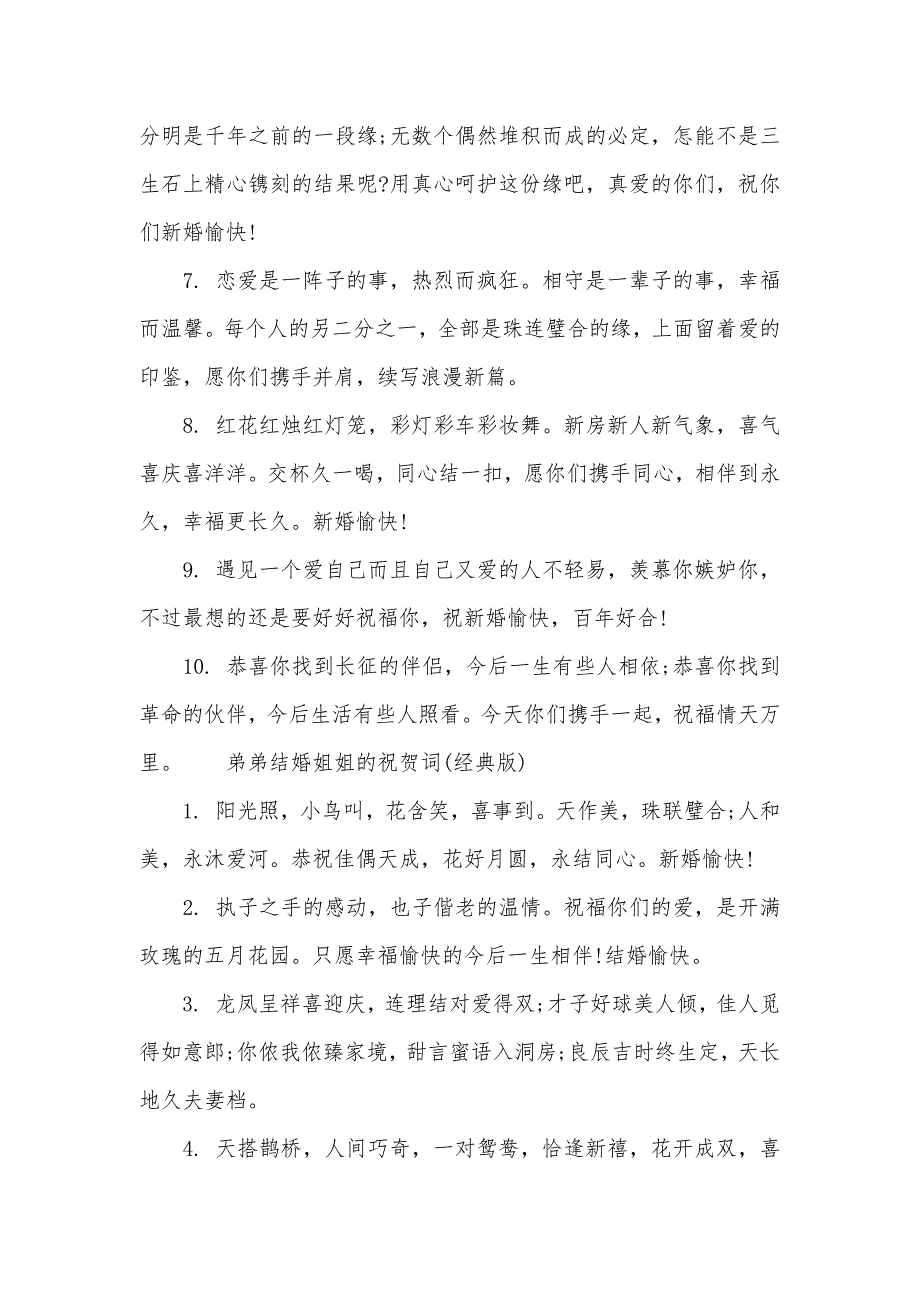 分明是千年之前的一段缘;无数个偶然堆积而成的必定，怎能不是三
生石上精心镌刻的结果呢?用真心呵护这份缘吧，真爱的你们，祝你
们新婚愉快!
7. 恋爱是一阵子的事，热烈而疯狂。相守是一辈子的事，幸福
而温馨。每个人的另二分之一，全部是珠连璧合的缘，上面留着爱的
印鉴，愿你们携手并肩，续写浪漫新篇。
8. 红花红烛红灯笼，彩灯彩车彩妆舞。新房新人新气象，喜气
喜庆喜洋洋。交杯久一喝，同心结一扣，愿你们携手同心，相伴到永
久，幸福更长久。新婚愉快!
9. 遇见一个爱自己而且自己又爱的人不轻易，羡慕你嫉妒你，
不过最想的还是要好好祝福你，祝新婚愉快，百年好合!
10. 恭喜你找到长征的伴侣，今后一生有些人相依;恭喜你找到
革命的伙伴，今后生活有些人照看。今天你们携手一起，祝福情天万
里。　　弟弟结婚姐姐的祝贺词(经典版)
1. 阳光照，小鸟叫，花含笑，喜事到。天作美，珠联璧合;人和
美，永沐爱河。恭祝佳偶天成，花好月圆，永结同心。新婚愉快!
2. 执子之手的感动，也子偕老的温情。祝福你们的爱，是开满
玫瑰的五月花园。只愿幸福愉快的今后一生相伴!结婚愉快。
3. 龙凤呈祥喜迎庆，连理结对爱得双;才子好球美人倾，佳人觅
得如意郎;你侬我侬臻家境，甜言蜜语入洞房;良辰吉时终生定，天长
地久夫妻档。
4. 天搭鹊桥，人间巧奇，一对鸳鸯，恰逢新禧，花开成双，喜